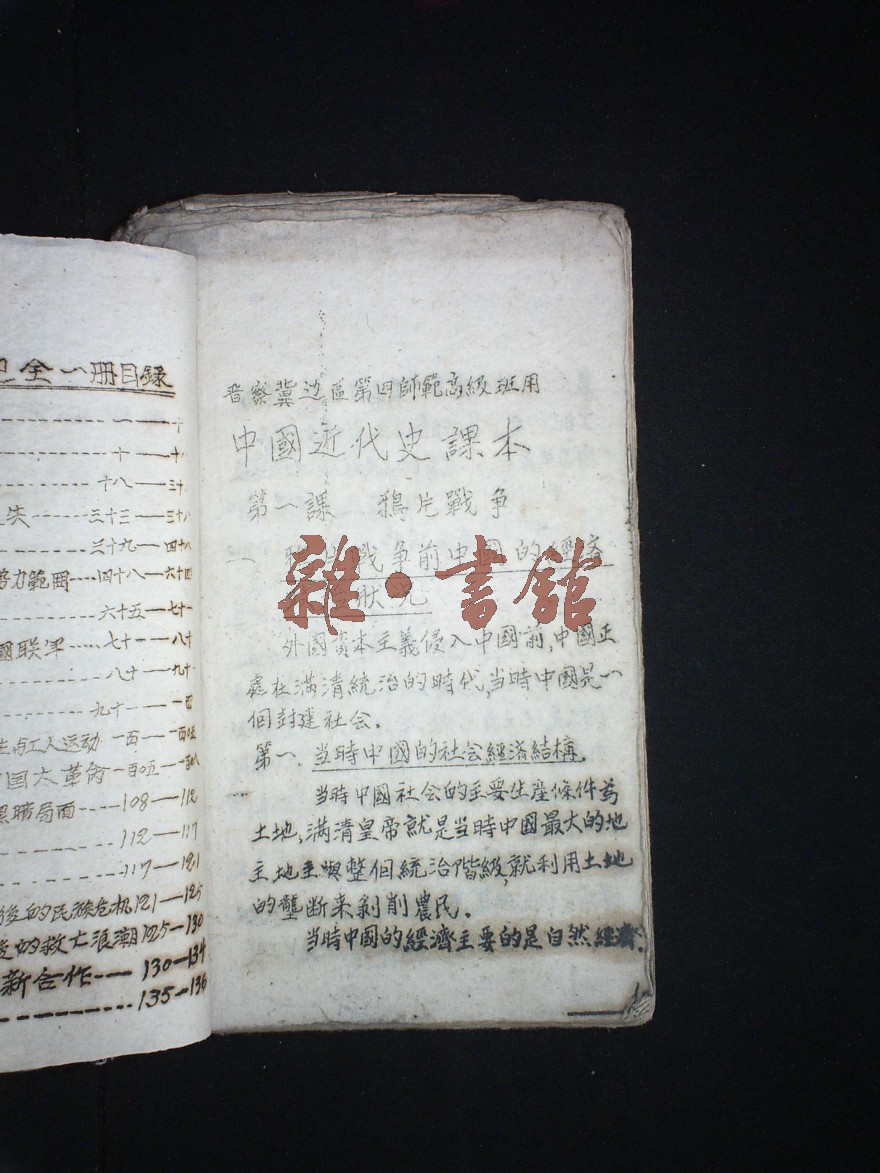 全一册目録
一——十
十——十八
十八——三十
失……三十三——三十八
三十九——四十八
势力範囲……四十八——六十四
六十五——七十一
國联军……七十一——八十
八十——九十
九十一——一百
工人运动 一百——一百零五
国大革命 一百零五
黑暗局面……108——112
112——117
117——121
後的民族危机121——125
後的救亡浪潮125——130
新合作——130——134
135——136
晋察冀边區第四師範高級班用
中國近代史課本
第一課 鴉片戰争
一 鴉片戰争前中國的經济
狀况
外國資本主義侵入中國前,中國正
處在满清統治的時代,当時中國是一
個封建社会.
第一.当時中國的社会經济結構.
当時中國社会的主要生產條件為
土地,满清皇帝就是当時中國最大的地
主地主與整個統治階級,就利用土地
的壟断来剝削農民。
当時中國的經濟主要的是自然經濟.
雜·書館